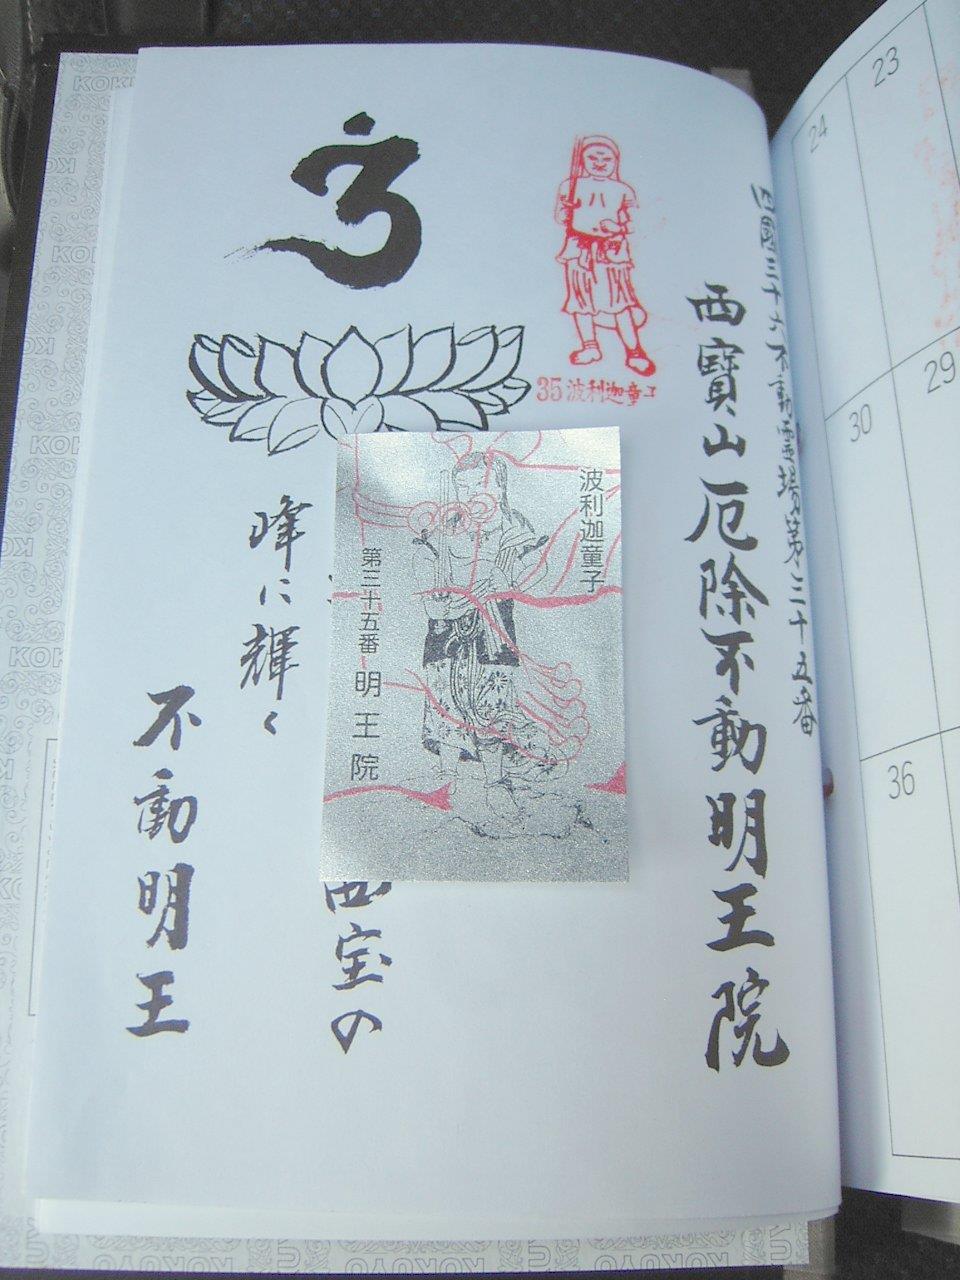 四國三十六不動霊場第三十五番
西寶山厄除不動明王院
35 波利迦童子
波利迦童子
第三十五番 明王院
西宝の
峰に輝く
不動明王
23
24
29
30
36
KOKUYO